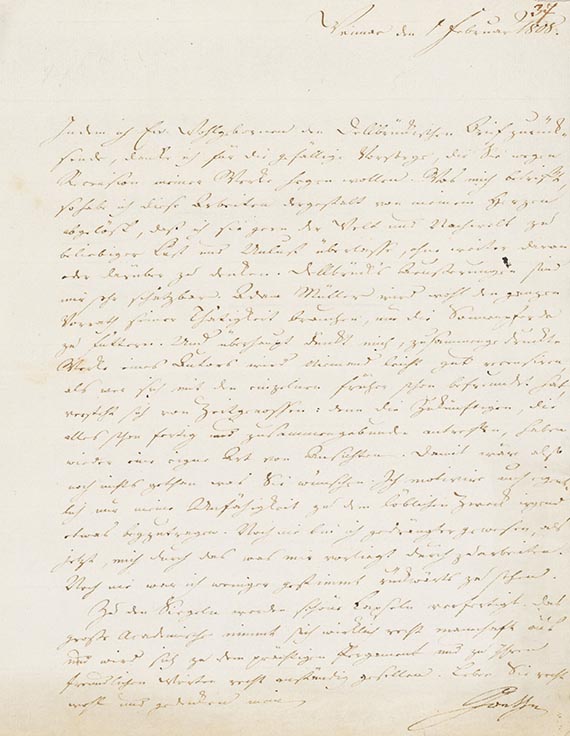 34
Weimar den 1 Februar 1808.
Indem ich Ew. Wohlgebornen den Delbrückischen Brief zurück
sende, danke ich für die gefällige Vorsorge, die Sie wegen
Recension meiner Werke hegen wollen. Was mich betrifft,
so habe ich diese Arbeiten dergestalt von meinem Herzen
abgelöst, daß ich sie gern der Welt und Nachwelt zu
beliebiger Lust und Unlust überlasse, ohne weiter daran
oder darüber zu denken. Delbrücks Äusserungen sind
mir sehr schätzbar. Adam Müller wird wohl den ganzen
Vorrath seiner Thätigkeit brauchen, um die Sonnenpferde
zu füttern. Und überhaupt dünkt mich, zusammengedruckte
Werke eines Autors wird Niemand leicht gut recensiren,
als wer sich mit den einzelnen früher schon befreundet hat,
versteht sich von Zeitgenossen: denn die Zukünftigen, die
alles schon fertig und zusammengebunden antreffen, haben
wieder eine eigne Art von Ansichten. Damit wäre also
noch nichts gethan was Sie wünschen. Ich motivire auch
nur meine Unfähigkeit zu dem löblichen Zweck irgend
etwas beyzutragen. Noch nie bin ich gedrängter gewesen, als
jetzt, mich durch das was mir vorliegt durchzuarbeiten.
Noch nie war ich weniger gestimmt rückwärts zu sehen.
Zu den Siegeln werden schöne Kapseln verfertigt. Das
große Academische nimmt sich wirklich recht mannhaft aus
und wird sich zu dem prächtigen Pergament und zu Ihren
freundlichen Worten recht anständig gesellen. Leben Sie recht
wohl und gedenken mein
Goethe